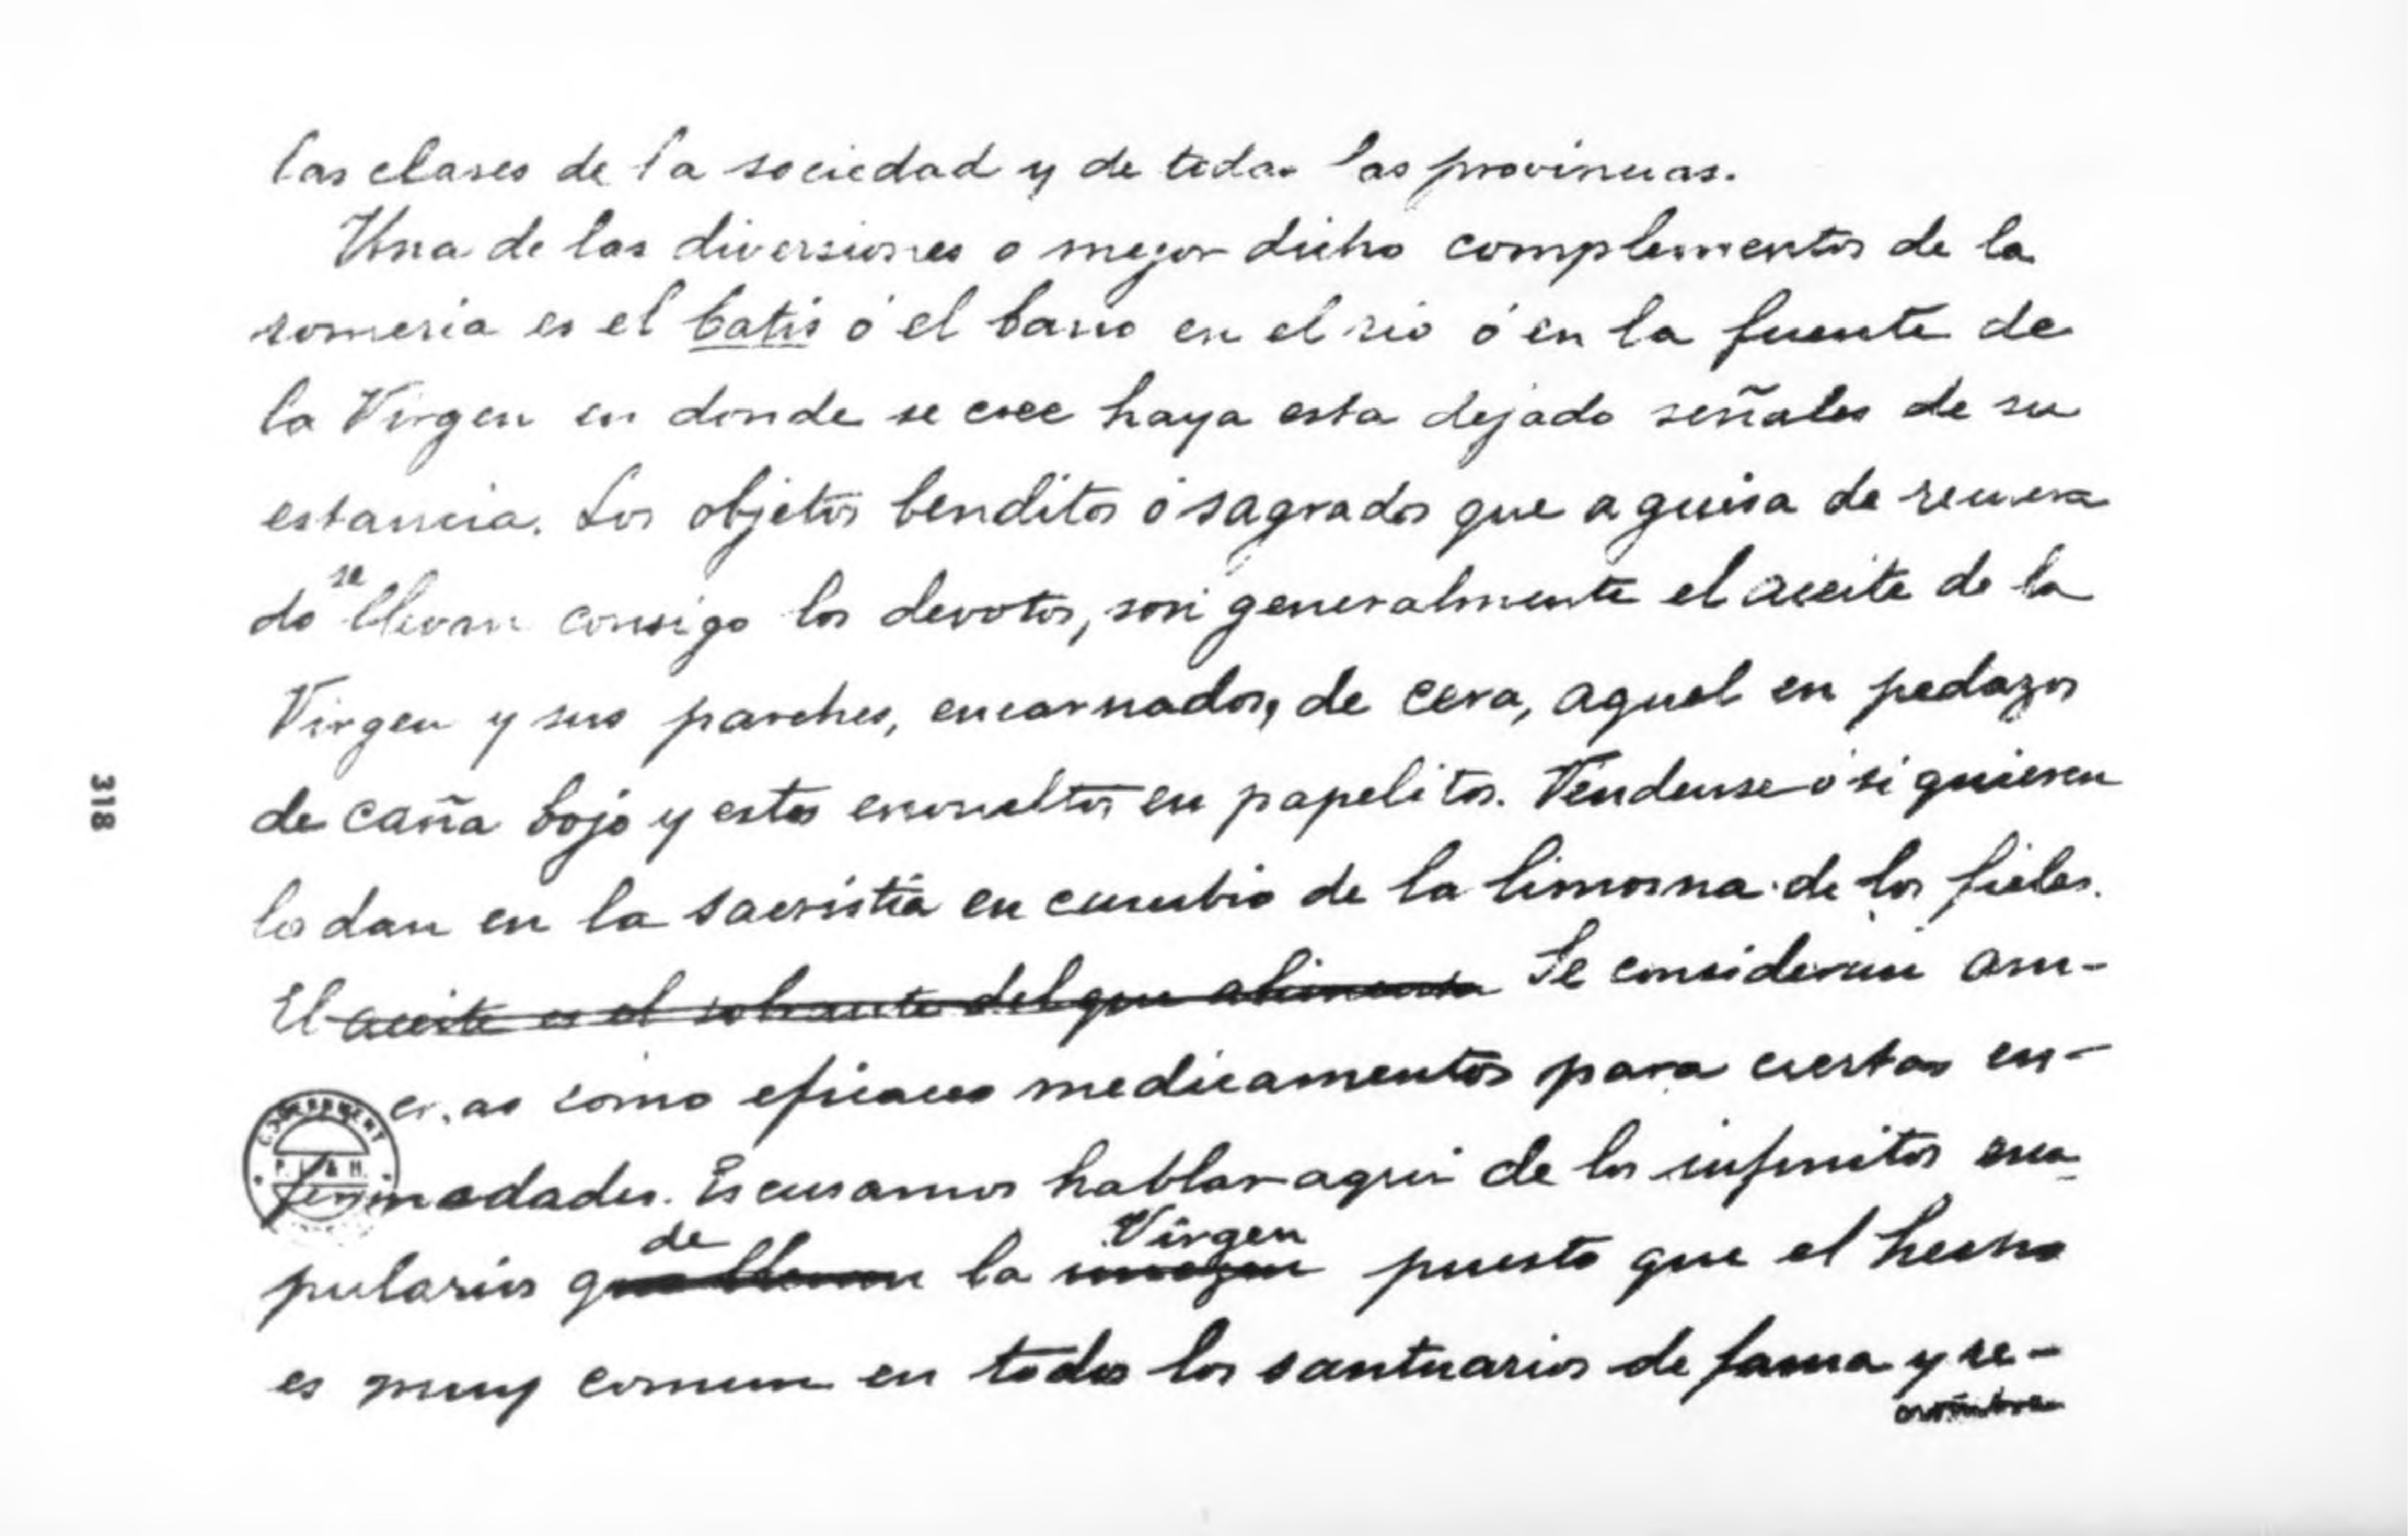 las clases de la sociedad y de todas las provincias.
Una de las diversiones o mejor dicho complementos de la
romeria es el batis ó el baño en el rio ó en la fuente de
la Virgen en donde se cree haya esta dejado señales de su
estancia. Los objetos benditos ó sagrados que a guisa de recuer
do se llevan consigo los devotos, son generalmente el aceite de la
Virgen y sus parches, encarnados, de cera, aquel en pedazos
de caña bojo y estos envueltos en papelitos. Véndense ó si quieren
lo dan en la sacristía en cambio de la limosna de los fieles.
El aceite es el sobrante del que alimenta Se consideran am-
as como eficaces medicamentos para ciertas en-
fermedades. Escusamos hablar aquí de los infinitos esca
pularios que llevan de la imagen Virgen puesto que el hecho
es muy comun en todos los santuarios de fama y re-
318